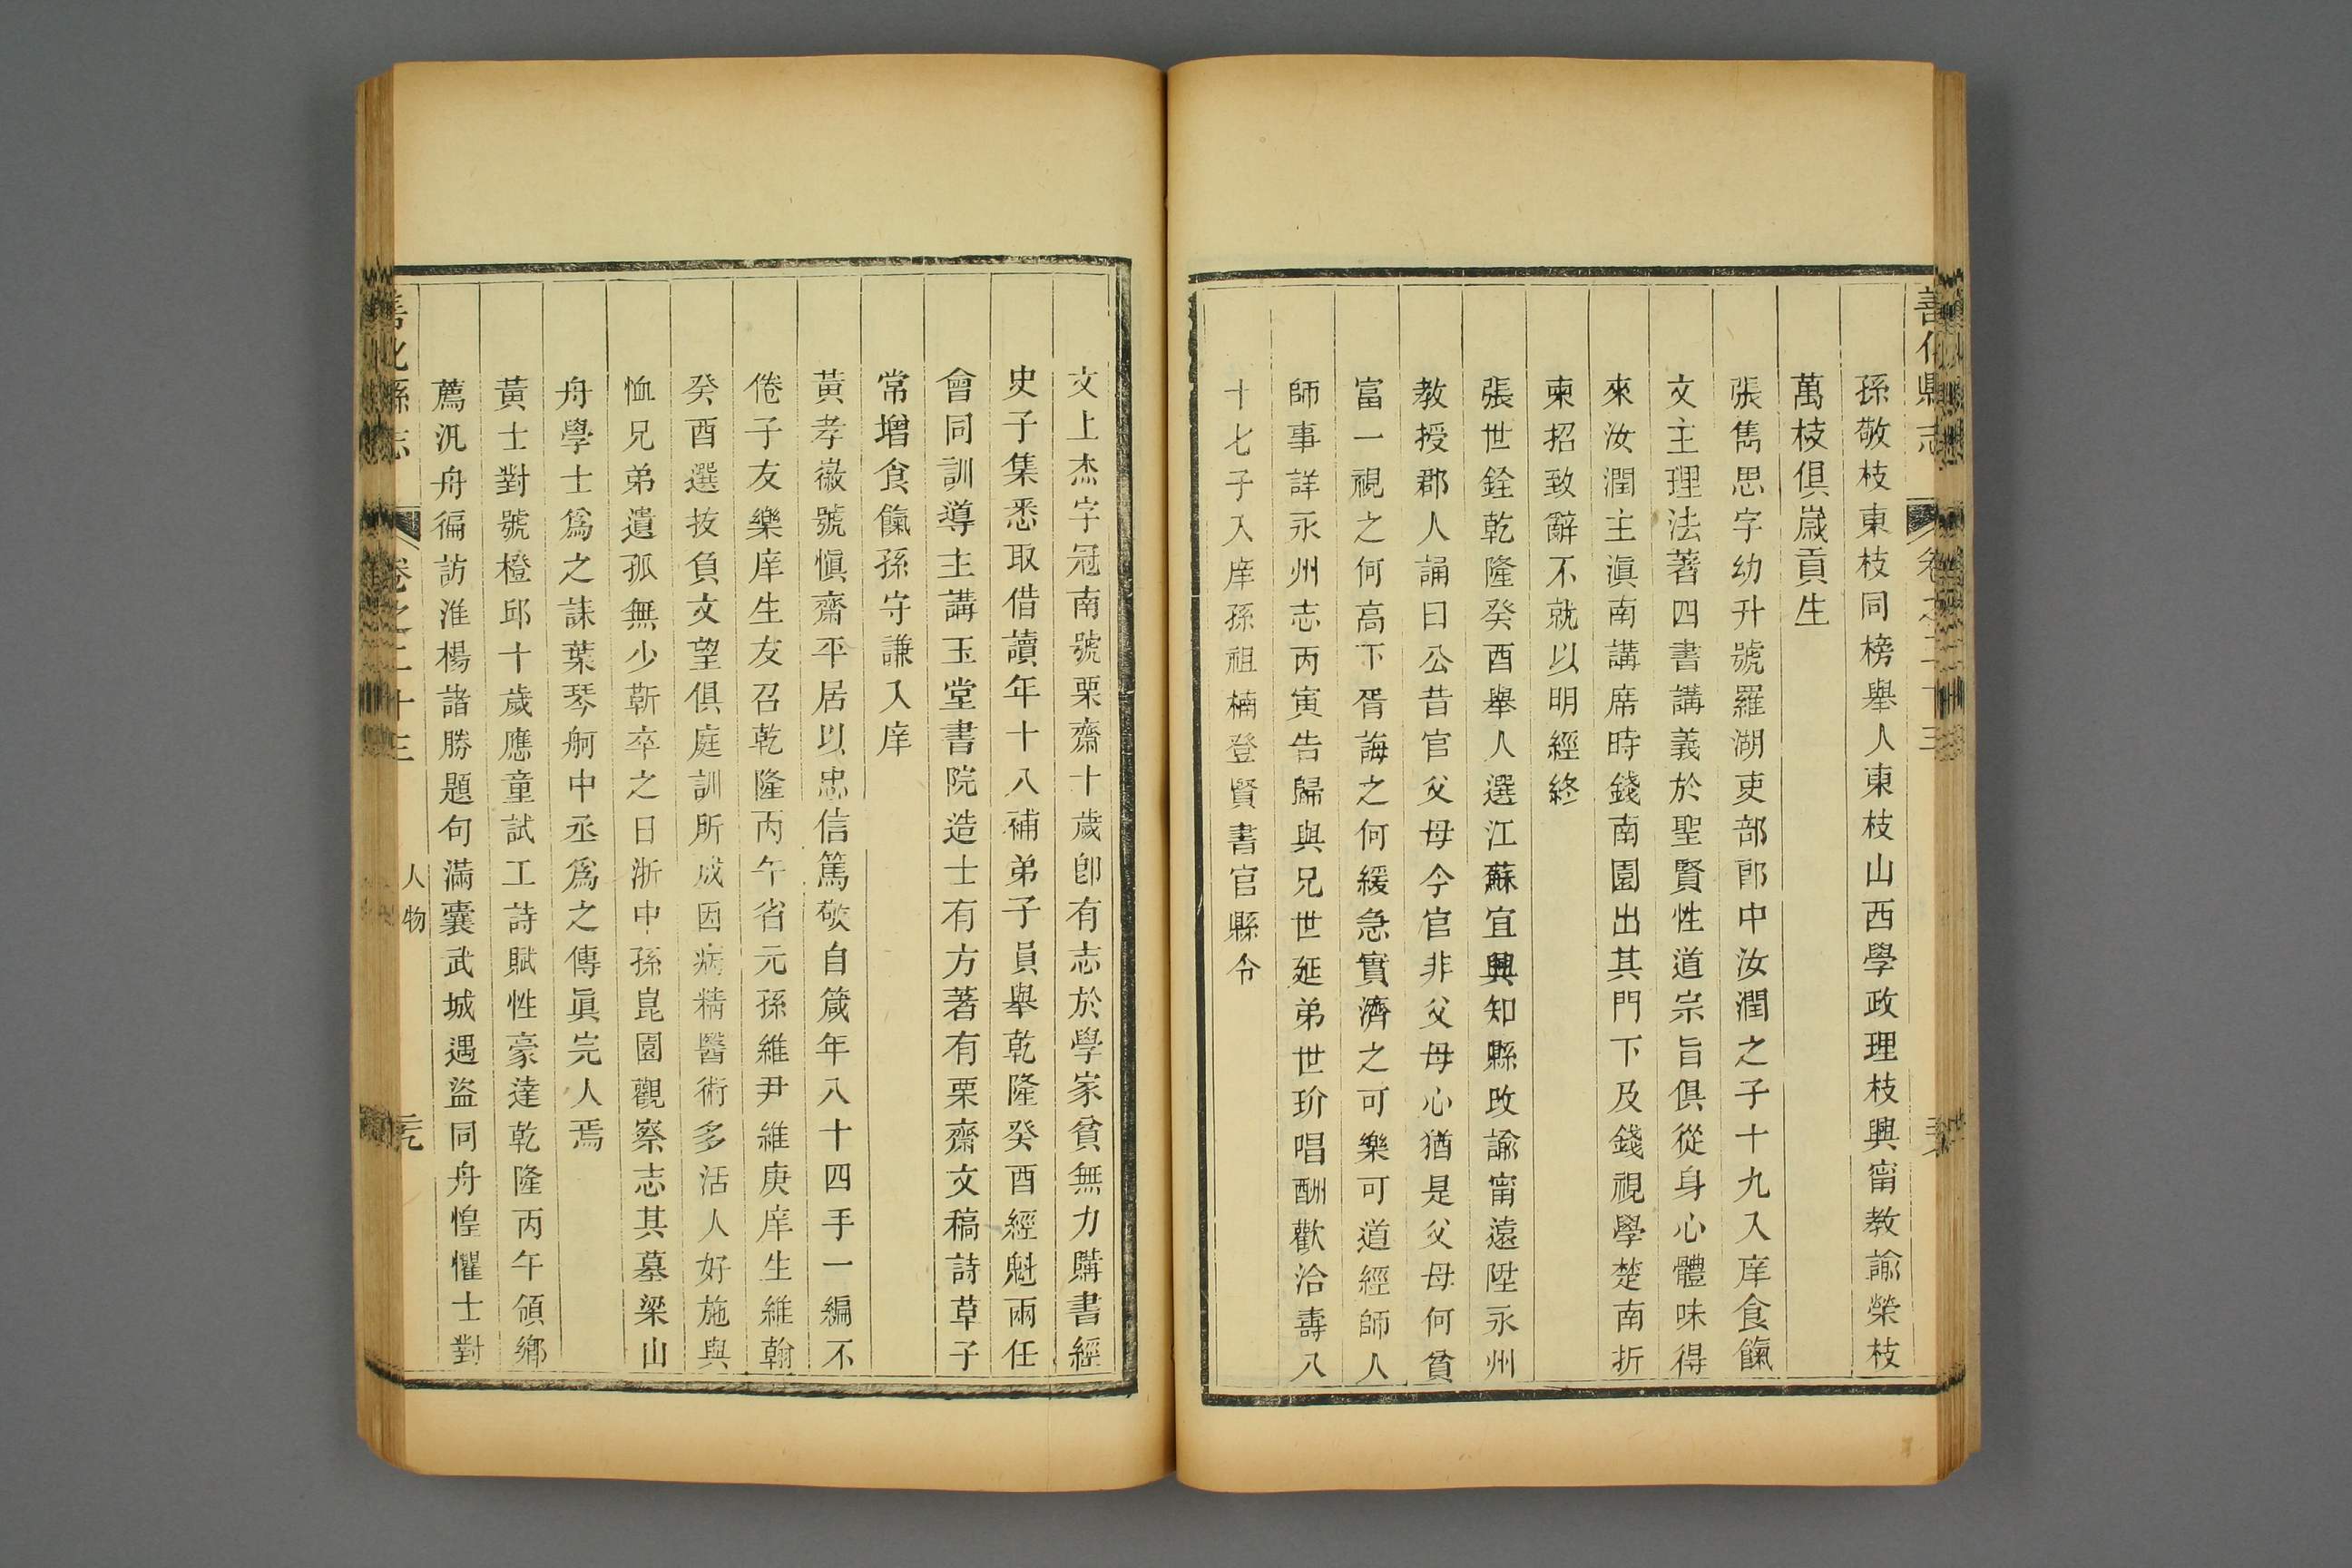 孫敬枝東枝同榜舉人東枝山西學政理枝興甯教諭榮枝
萬枝俱歲貢生
張雋思字幼升號羅湖吏部郎中汝潤之子十九入庠食餼
文主理法著四書講義於聖賢性道宗旨俱從身心體味得
來汝潤主滇南講席時錢南園出其門下及錢視學楚南折
柬招致辭不就以明經終
張世銓乾隆癸酉舉人選江蘇宜興知縣改諭甯遠陞永州
教授郡人誦曰公昔官父母今官非父母心猶是父母何貧
富一視之何高下胥誨之何緩急實濟之可樂可道經師人
師事詳永州志丙寅告歸與兄世延弟世玠唱酬歡洽壽八
十七子入庠孫祖楠登賢書官縣令
文上杰字冠南號栗齋十歲卽有志於學家貧無力購書經
史子集悉取借讀年十八補弟子員舉乾隆癸酉經魁兩任
會同訓導主講玉堂書院造士有方著有栗齋文稿詩草子
常增食餼孫守謙入庠
黃孝徽號愼齋平居以忠信篤敬自箴年八十四手一編不
倦子友樂庠生友召乾隆丙午省元孫維尹維庚庠生維翰
癸酉選拔負文望俱庭訓所成因病精醫術多活人好施與
恤兄弟遺孤無少靳卒之日浙中孫崑園觀察志其墓梁山
舟學士爲之誄葉琴舸中丞爲之傳眞完人焉
黃士對號橙邱十歲應童試工詩賦性豪達乾隆丙午領鄉
薦汎舟徧訪淮楊諸勝題句滿囊武城遇盜同舟惶懼士對
善化縣志
卷之二十三
人物